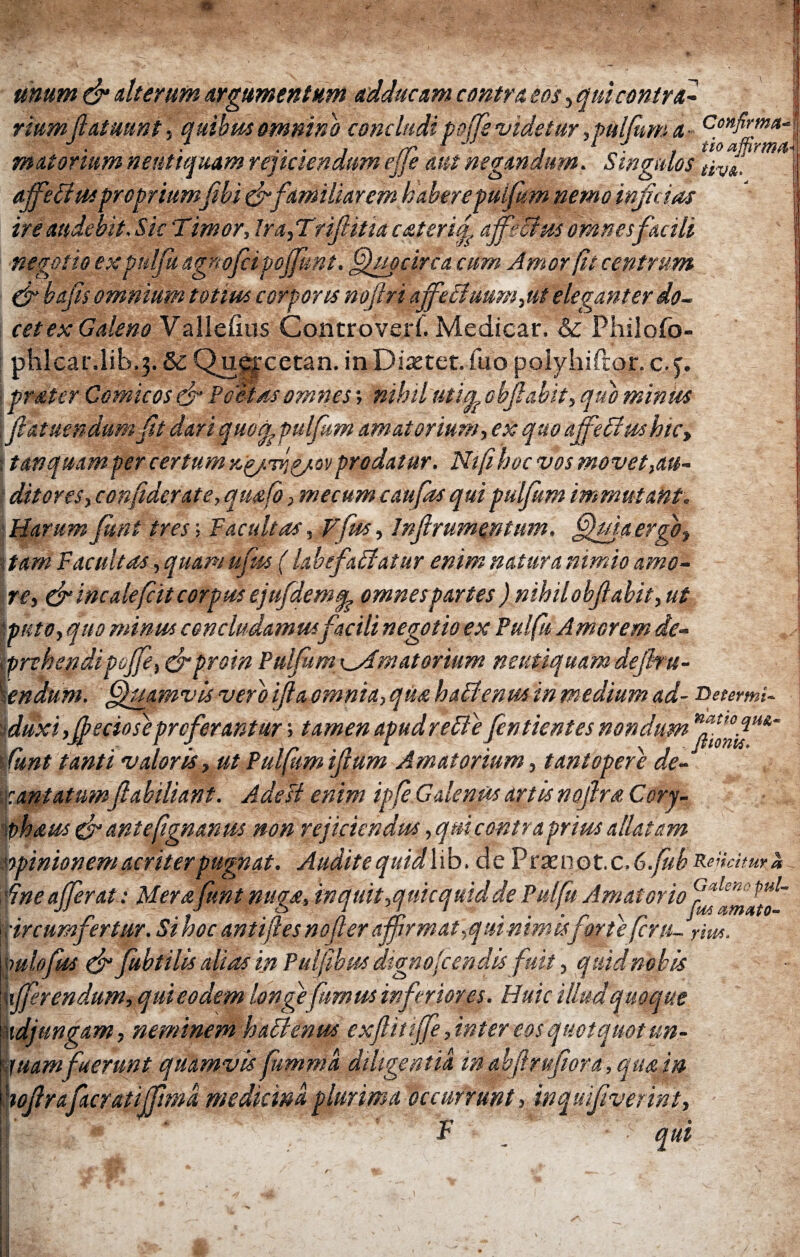 unum & alterum argumentum adducam contra eos, qui contra-
rium statuunt, quibus omnino concludi posse videtur, pulsum a-
matorium neutiquam rejiciendum esse aut negandum. Singulos
affectus proprium sibi & familiarem habere pulsum nemo inficias
ire audebit. Sic Timor, Ira, Tristitia cæteriq; affectus omnes facili
negotio ex pulsu agnosci possunt. Quocirca cum Amor sit centrum
& basis omnium totius corporis nostri affectuum, ut eleganter do-
cet ex Galeno Vallesius Controvers. Medicar. & Philoso-
phicar. lib. 3. & Quercetan. in Diætet. suo polyhistor. c. 5.
præter Comicos & Poëtas omnes; nihil utiq; obstabit, quo minus
statuendum sit dari quoq; pulsum amatorium, ex quo affectus hic,
tanquam per certum κριτήριον prodatur. Nisi hoc vos movet, au-
ditores, considerate, quæso, mecum causas qui pulsum immutant.
Harum sunt tres; Facultas, Usus, Instrumentum. Quia ergò,
tam Facultas, quam usus ( labefactatur enim natura nimio amo-
re, & incalescit corpus ejusdemq; omnes partes ) nihil obstabit, ut
puto, quo minus concludamus facili negotio ex Pulsu Amorem de-
prehendi posse, & proin Pulsum Amatorium neutiquam destru-
endum. Quamvis vero ista omnia, quæ hactenus in medium ad-
duxi, speciosè proferantur; tamen apud rectè sentientes nondum
sunt tanti valoris, ut Pulsum istum Amatorium, tantopere de-
cantatum stabiliant. Adest enim ipse Galenus artis nostræ Cory-
phæus & antesignanus non rejiciendus, qui contra prius allatam
opinionem acriter pugnat. Audite quid lib. de Prænot. c. 6. sub
fine asserat: Mera sunt nugæ, inquit, quicquid de Pulsu Amatorio
circumfertur. Si hoc antistes noster affirmat, qui nimis fortè scru-
pulosus & subtilis alias in Pulsibus dignoscendis fuit, quid nobis
asserendum, qui eodem longè sumus inferiores. Huic illud quoque
adjungam, neminem hactenus exstitisse, inter eos quotquot un-
quam fuerunt quamvis summâ diligentiâ in abstrusiora, quæ in
nostra sacratissimâ medicinâ plurima occurrunt, inquisiverint,
F qui
Confirma-
tio affirma-
tiva.
Determi-
natio quæ-
stionis.
Reiicitur à
Galeno pul-
sus amato-
rius.